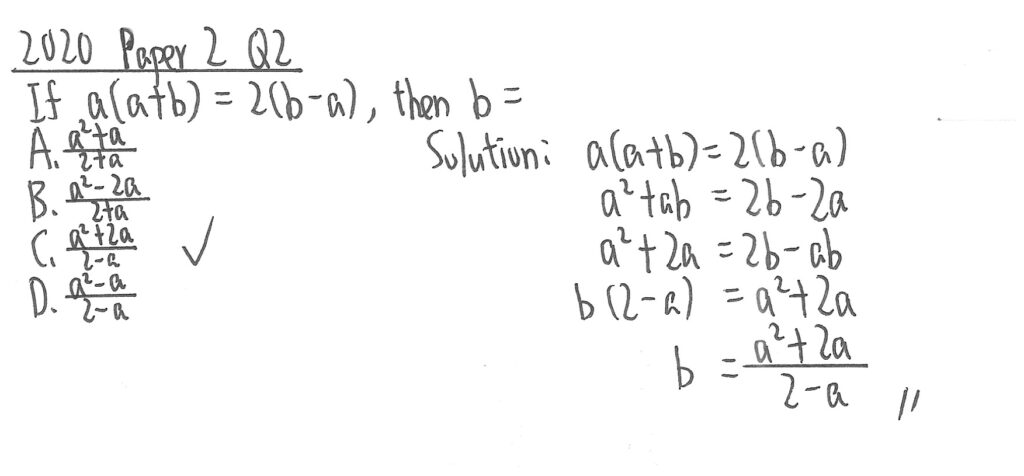 2020 Paper 2 Q2
If a(a+b) = 2(b-a), then b =
A. a²+a / 2+a
B. a²-2a / 2+a
C. a²+2a / 2-a ✓
D. a²-a / 2-a
Solution: a(a+b) = 2(b-a)
a²+ab = 2b-2a
a²+2a = 2b-ab
b(2-a) = a²+2a
b = a²+2a / 2-a //